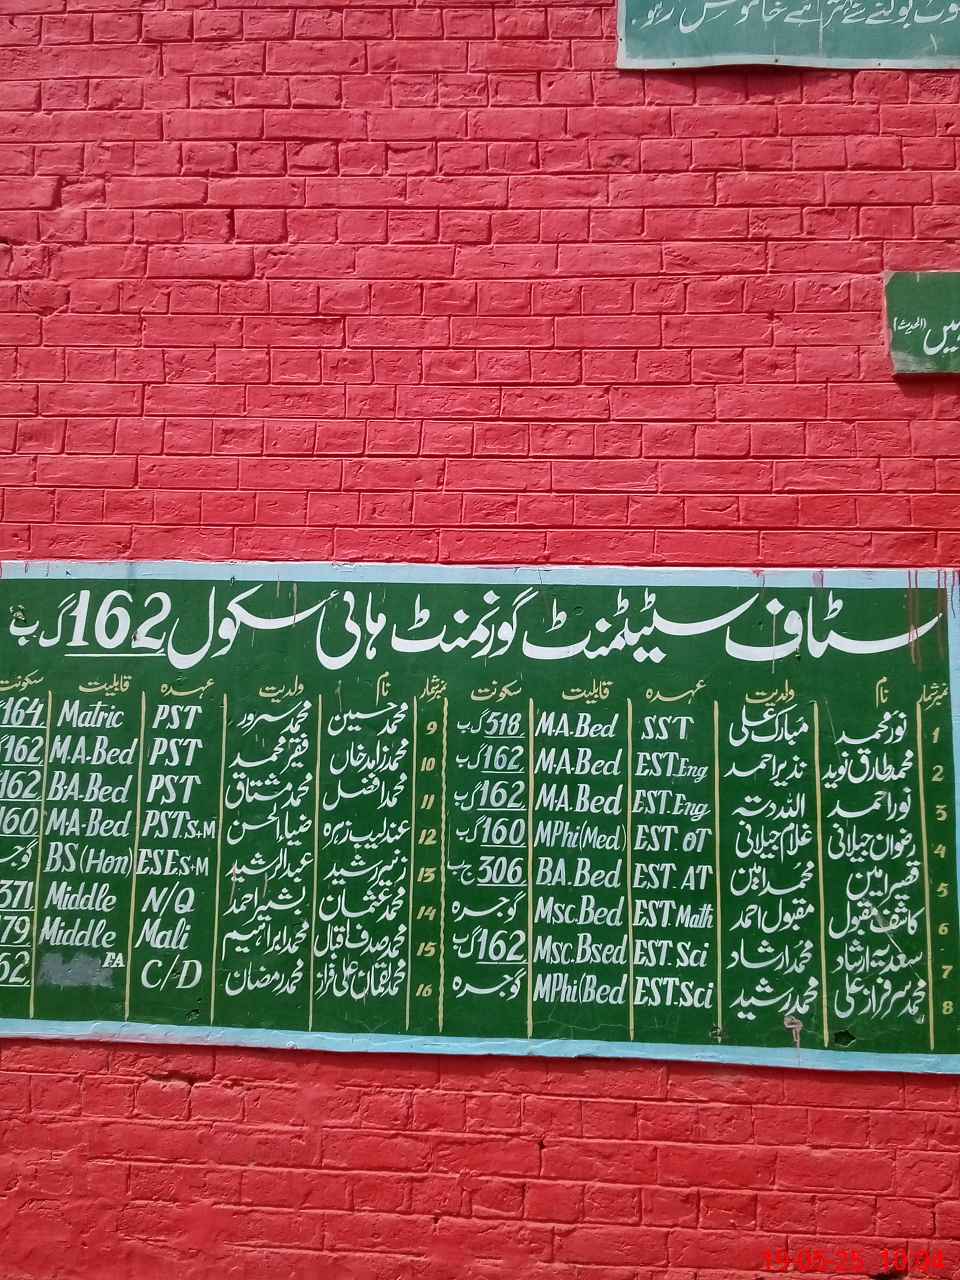 بولنے سے بہتر ہے خاموش رہو.
ہیں (الحدیث)
سٹاف سٹیٹمنٹ گورنمنٹ ہائی سکول 162 گ ب
نمبرشمار نام ولدیت عہدہ قابلیت سکونت نمبرشمار نام ولدیت عہدہ قابلیت سکونت
1 نور محمد مبارک علی SST M.A.Bed 518 گ ب 9 محمد حسین محمد سرور PST Matric 164
2 محمد طارق نوید نذیر احمد EST.Eng M.A.Bed 162 گ ب 10 محمد زاہد خاں فقیر محمد PST M.A.Bed 162
3 نور احمد اللہ دتہ EST.Eng M.A.Bed 162 گ ب 11 محمد افضل محمد مشتاق PST B.A.Bed 162
4 رضوان جیلانی غلام جیلانی EST.OT MPhi(Med) 160 گ ب 12 عندلیب زہرہ ضیاءالحسن PST.S+M M.A-Bed 160
5 قصیر امین محمد امین EST.AT BA.Bed 306 ج ب 13 زنیر رشید عبدالرشید ESE.S+M BS(Hon) گوجرہ
6 کاشف مقبول مقبول احمد EST Math Msc.Bed گوجرہ 14 محمد عثمان بشیر احمد N/Q Middle 371
7 سعدیہ ارشاد محمد ارشاد EST.Sci Msc.Bsed 162 گ ب 15 محمد صدف اقبال محمد ابراہیم Mali Middle 79
8 محمد سرفراز علی محمد رشید EST.Sci MPhi(Bed گوجرہ 16 محمد لقمان علی فراز محمد رمضان C/D F.A 62
19-05-25 10:04